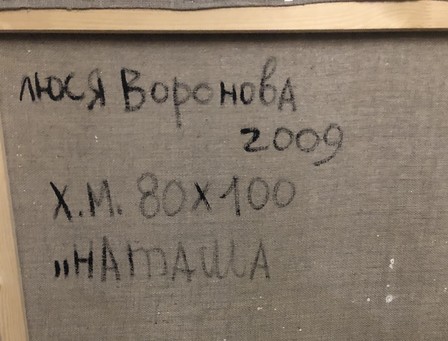 Люся Воронова
2009
Х.М. 80Х100
„НАТАША